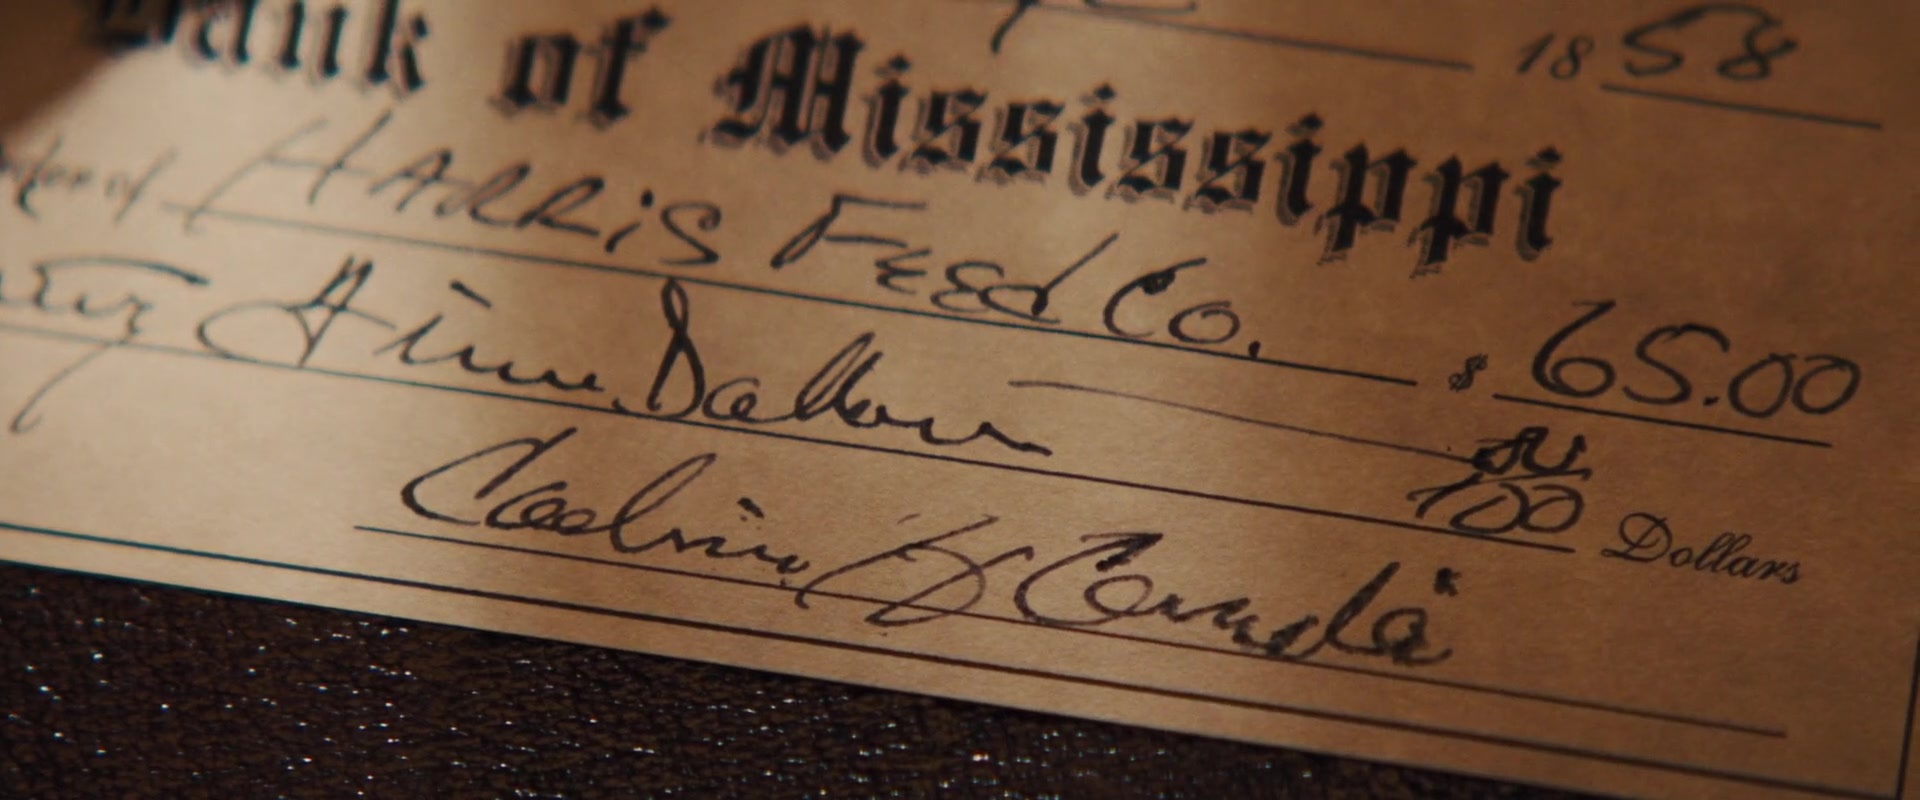 18 58
Bank of Mississippi
order of HARRiS FEEd Co. $ 65.00
Five Dollars 100 Dollars
Calvin J Candie